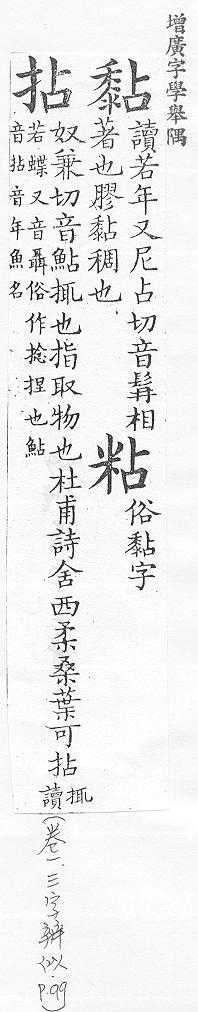 增廣字學舉隅
黏
讀若年又尼占切音髯相
著也膠黏稠也
粘
俗黏字
拈
奴兼切音鮎㧗也指取物也杜甫詩舍西柔桑葉可拈
㧗
讀
若蝶又音聶俗作捻捏也鮎
音拈音年魚名
(卷一.三字辨似 P.99)